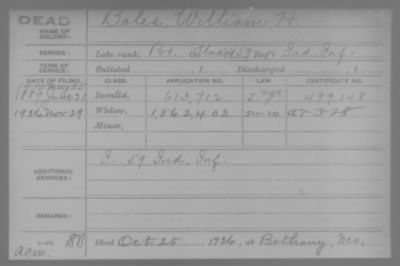 DEAD
NAME OF SOLDIER: Dales, William H.
SERVICE: Late rank, Pvt. Co. 59 Regt Ind. Inf.
TERM OF SERVICE: Enlisted , 1 Discharged , 1
DATE OF FILING. CLASS. APPLICATION NO. LAW. CERTIFICATE NO.
1887 June 21 Invalid, 613,712 499.148
1926 Nov 29 Widow, 1,562,403 A-7-3-28
Minor,
ADDITIONAL SERVICES: I- 59 Ind. Inf.
REMARKS:
Died Oct 25, 1926, at Bethany, Mo.